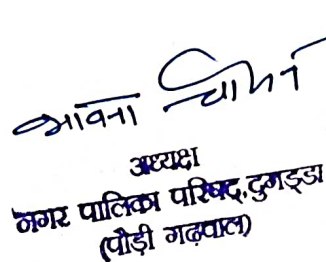 भावना चौहान
अध्यक्ष
नगर पालिका परिषद,दुगड्डा
(पौड़ी गढ़वाल)